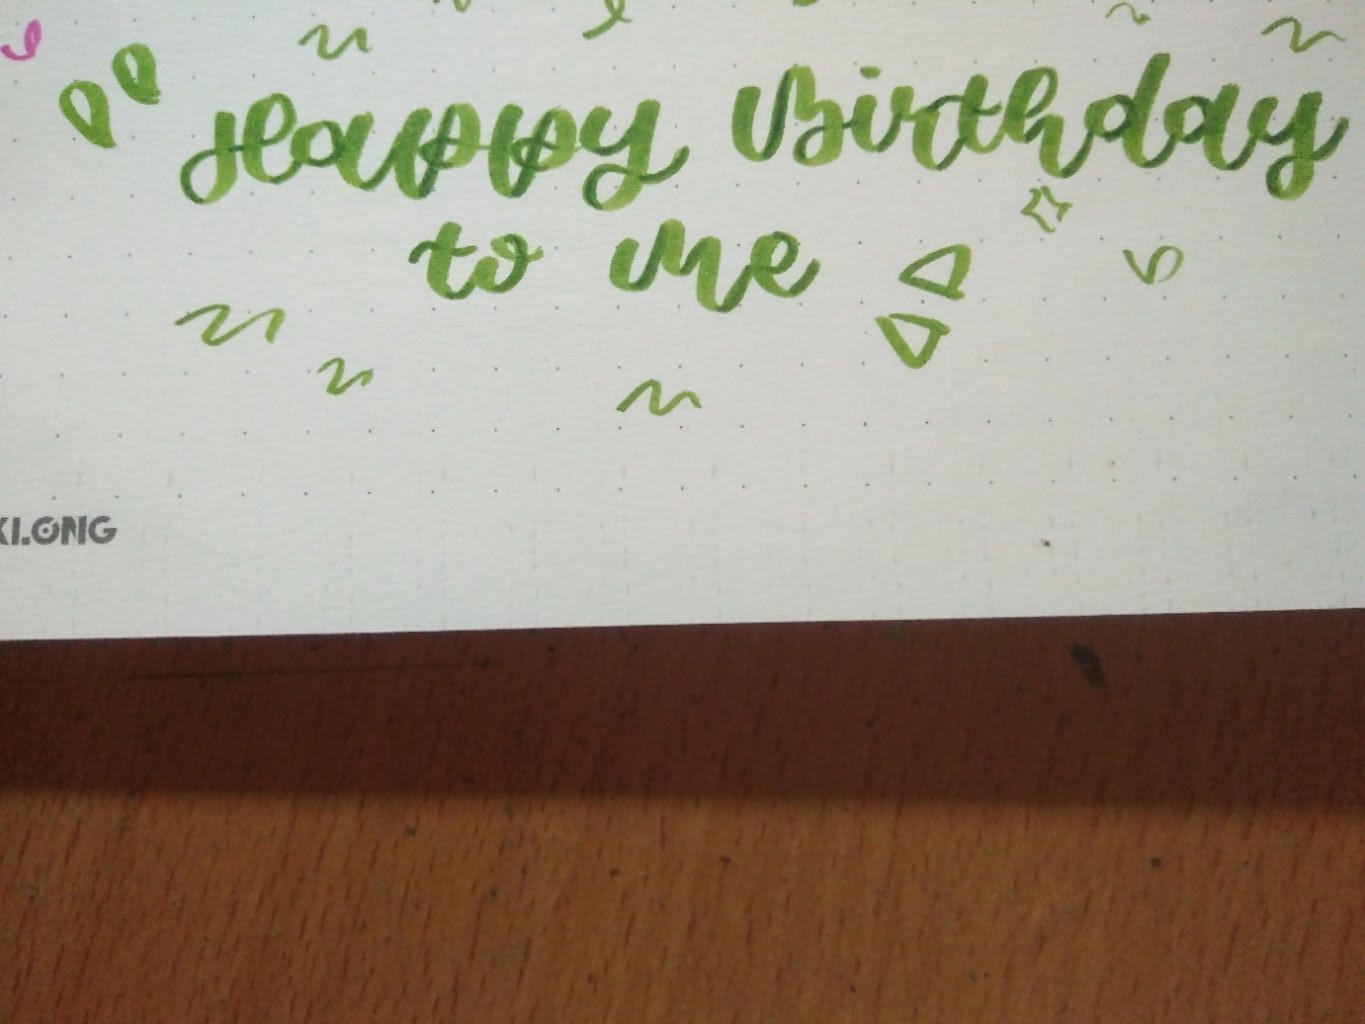 Happy Birthday
to me
KI.ONG